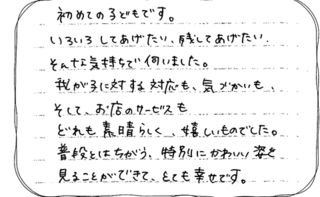 初めての子どもです。
いろいろしてあげたい、残してあげたい、
そんな気持ちで伺いました。
我が子に対する対応も、気づかいも、
そして、お店のサービスも
どれも素晴らしく、嬉しいものでした。
普段とはちがう、特別にかわいい姿を
見ることができて、とても幸せです。